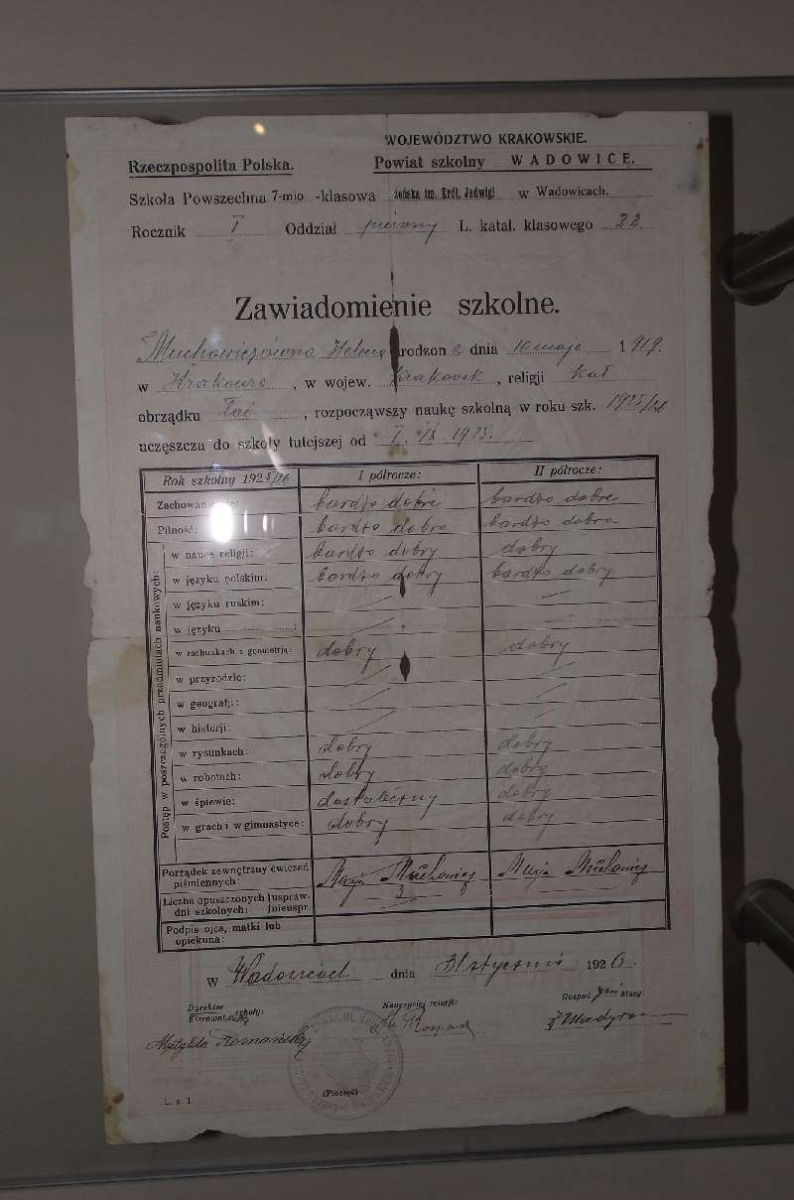 WOJEWÓDZTWO KRAKOWSKIE.
Rzeczpospolita Polska. Powiat szkolny WADOWICE.
Szkoła Powszechna 7-mio -klasowa żeńska im. Król. Jadwigi w Wadowicach.
Rocznik I Oddział pierwszy L. katal. klasowego 22
Zawiadomienie szkolne.
Muchowiczówna Helena urodzona dnia 10 maja 1919.
w Krakowie, w wojew. Krakowsk, religji kat
obrządku łać, rozpocząwszy naukę szkolną w roku szk. 1925/26
uczęszcza do szkoły tutejszej od 1. IX 1925.
Rok szkolny 1925/26 I półrocze: II półrocze:
bardzo dobre bardzo dobre
Pilność: bardzo dobra bardzo dobra
Postęp w poszczególnych przedmiotach naukowych:
w nauce religji: bardzo dobry dobry
w języku polskim: bardzo dobry bardzo dobry
w języku ruskim: — —
w języku ............ : — —
w rachunkach z geometrją: dobry dobry
w przyrodzie: — —
w geografji: — —
w historji: — —
w rysunkach: dobry dobry
w robotach: dobry dobry
w śpiewie: dostateczny dobry
w grach i w gimnastyce: dobry dobry
Porządek zewnętrzny ćwiczeń
piśmiennych:
Muchowicz Muchowicz
Liczba opuszczonych uspraw. 3
dni szkolnych: nieuspr. —
Podpis ojca, matki lub
opiekuna:
w Wadowicach dnia 31 stycznia 1926.
Dyrektor
Kierownik szkoły: Nauczyciel religji: klasy:
Matylda
(Pieczęć)